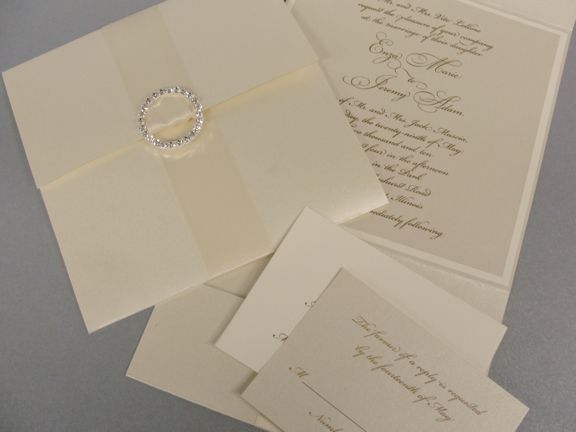 and Mrs. Vito Lollino
request the pleasure of your company
at the marriage of their daughter
Marie
to
Jeremy Adam
of Mr. and Mrs. Jack
the twenty-ninth of May
thousand and ten
four in the afternoon
in the Park
Road
Illinois
following
The favour of a reply is requested
by the fourteenth of May
M